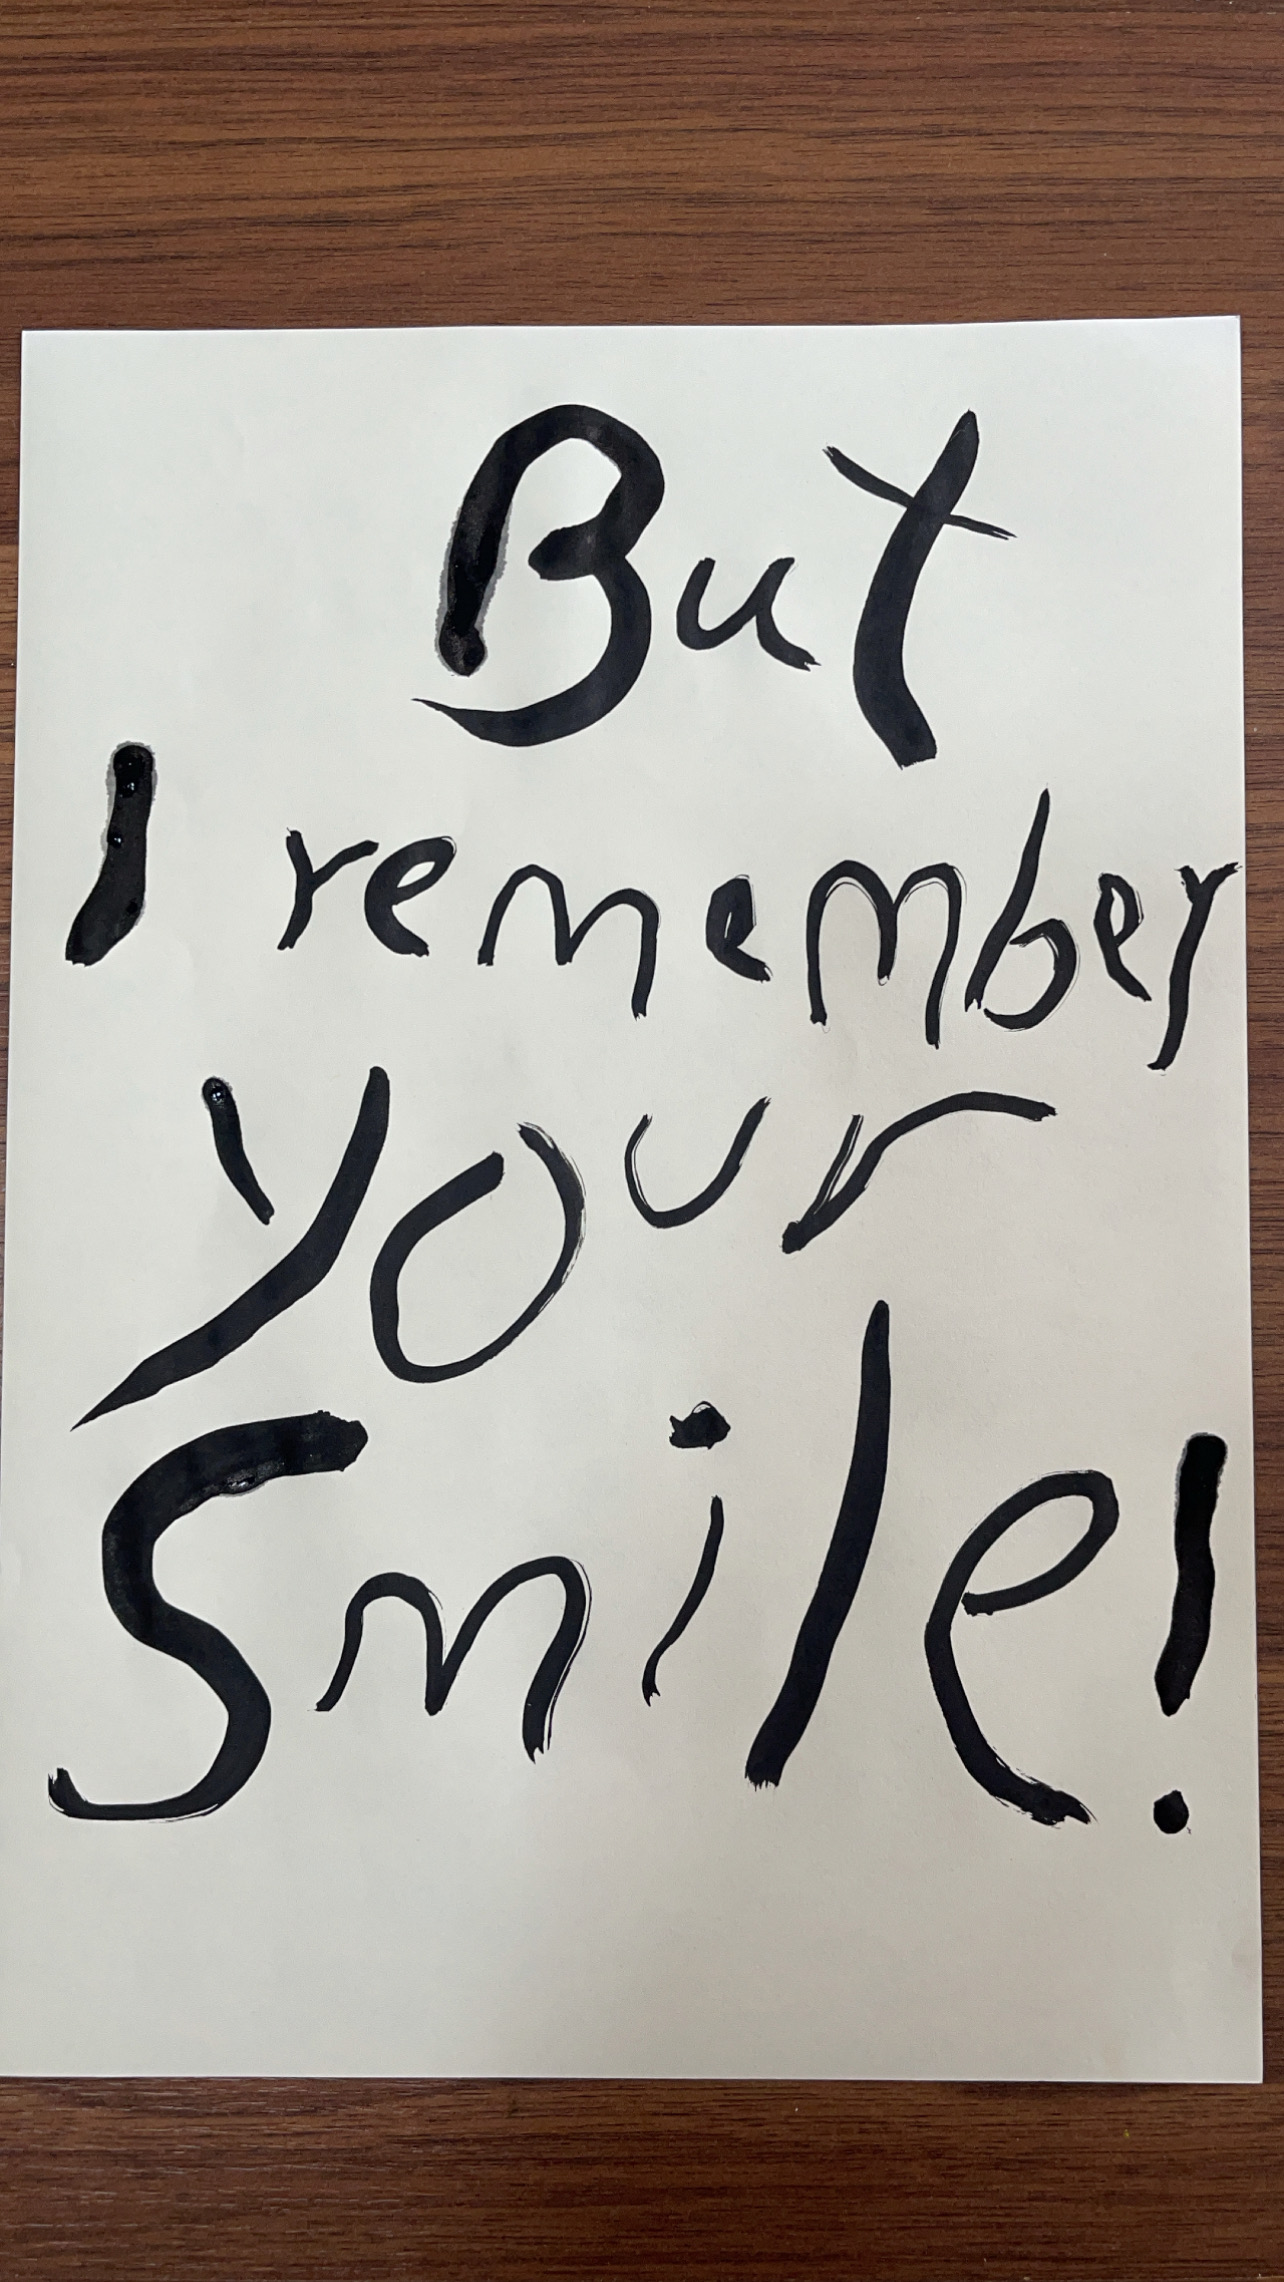 But
I remember
your
Smile!